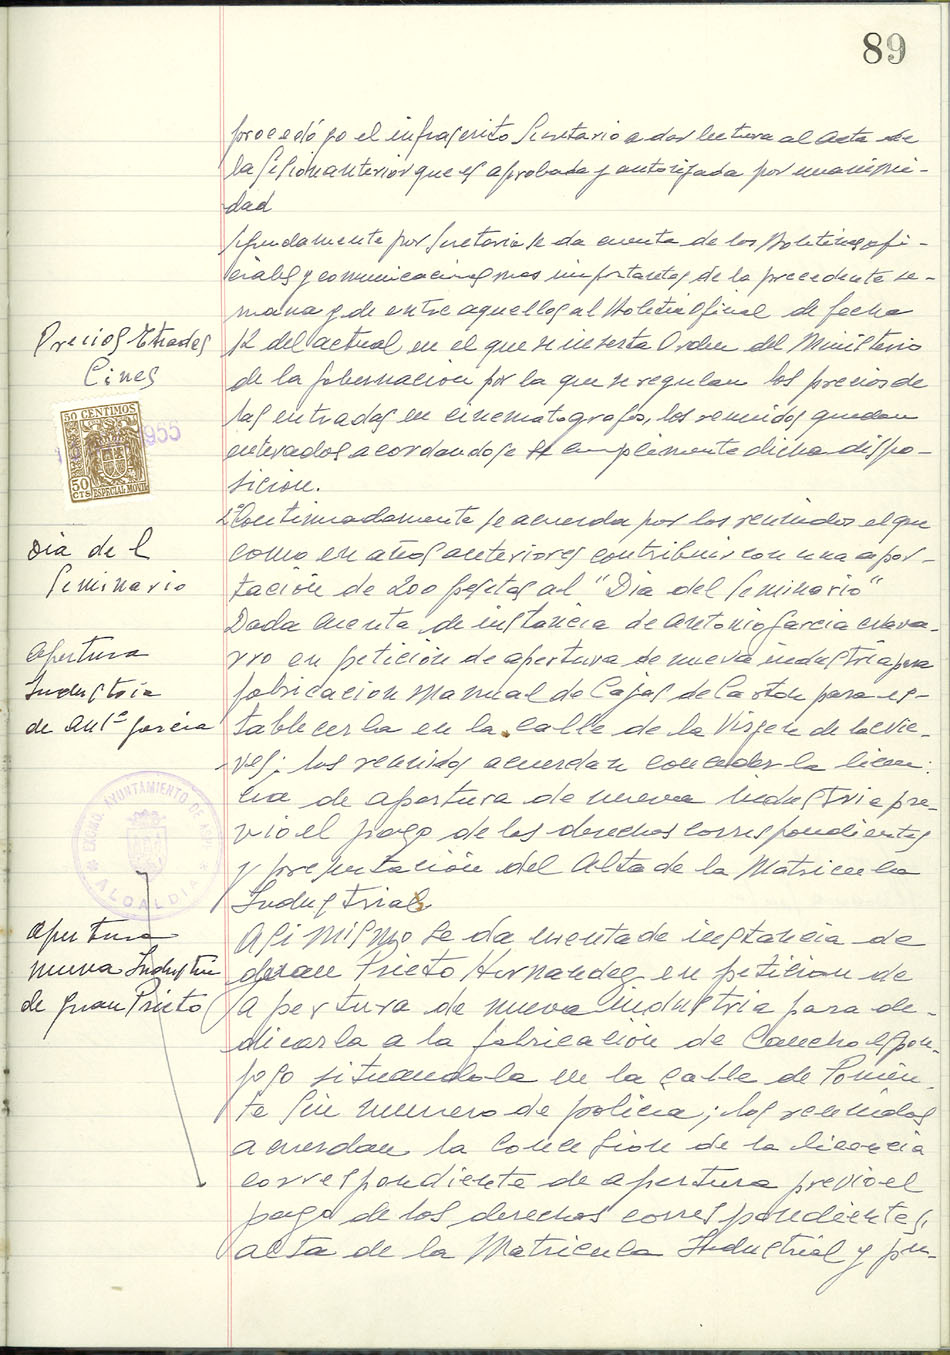 89
procedió yo el infrascrito Secretario a dar lectura al acta de
la Sesion anterior que es aprobada y autorizada por unanimi-
dad
Seguidamente por Secretaria se da cuenta de los Boletines ofi-
ciales y comunicaciones mas importantes de la precedente se-
mana y de entre aquellos al Boletin Oficial de fecha
Precios Entradas
Cines
12 del actual en el que se inserta Orden del Ministerio
de la Gobernacion por la que se regulan los precios de
las entradas en cinematografos, los reunidos quedan
enterados acordandose se cumplimente dicha dispo-
sicion.
50 CENTIMOS
1955
50
CTS ESPECIAL MOVIL
Continuadamente se acuerda por los reunidos el que
Dia del
Seminario
como en años anteriores contribuir con una apor-
tación de 200 pesetas al "Dia del Seminario"
Dada cuenta de instancia de Antonio Garcia Nava-
Apertura
Industria
de Antº Garcia
rro en petición de apertura de nueva industria para
fabricacion Manual de Cajas de Carton para es-
tablecerla en la calle de la Virgen de las Nie-
ves; los reunidos acuerdan conceder la licen-
cia de apertura de nueva industria pre-
vio el pago de los derechos correspondientes
y presentación del Alta de la Matricula
Industrial
EXCMO. AYUNTAMIENTO DE ASPE
ALCALDIA
Apertura
nueva Industria
de Juan Prieto
Asi mismo se da cuenta de instancia de
Juan Prieto Hernandez en peticion de
apertura de nueva industria para de-
dicarla a la fabricación de Caucho espon-
joso situandola en la calle de Ponien-
te sin numero de policia; los reunidos
acuerdan la concesión de la licencia
correspondiente de apertura previo el
pago de los derechos correspondientes,
alta de la Matricula Industrial y pre-